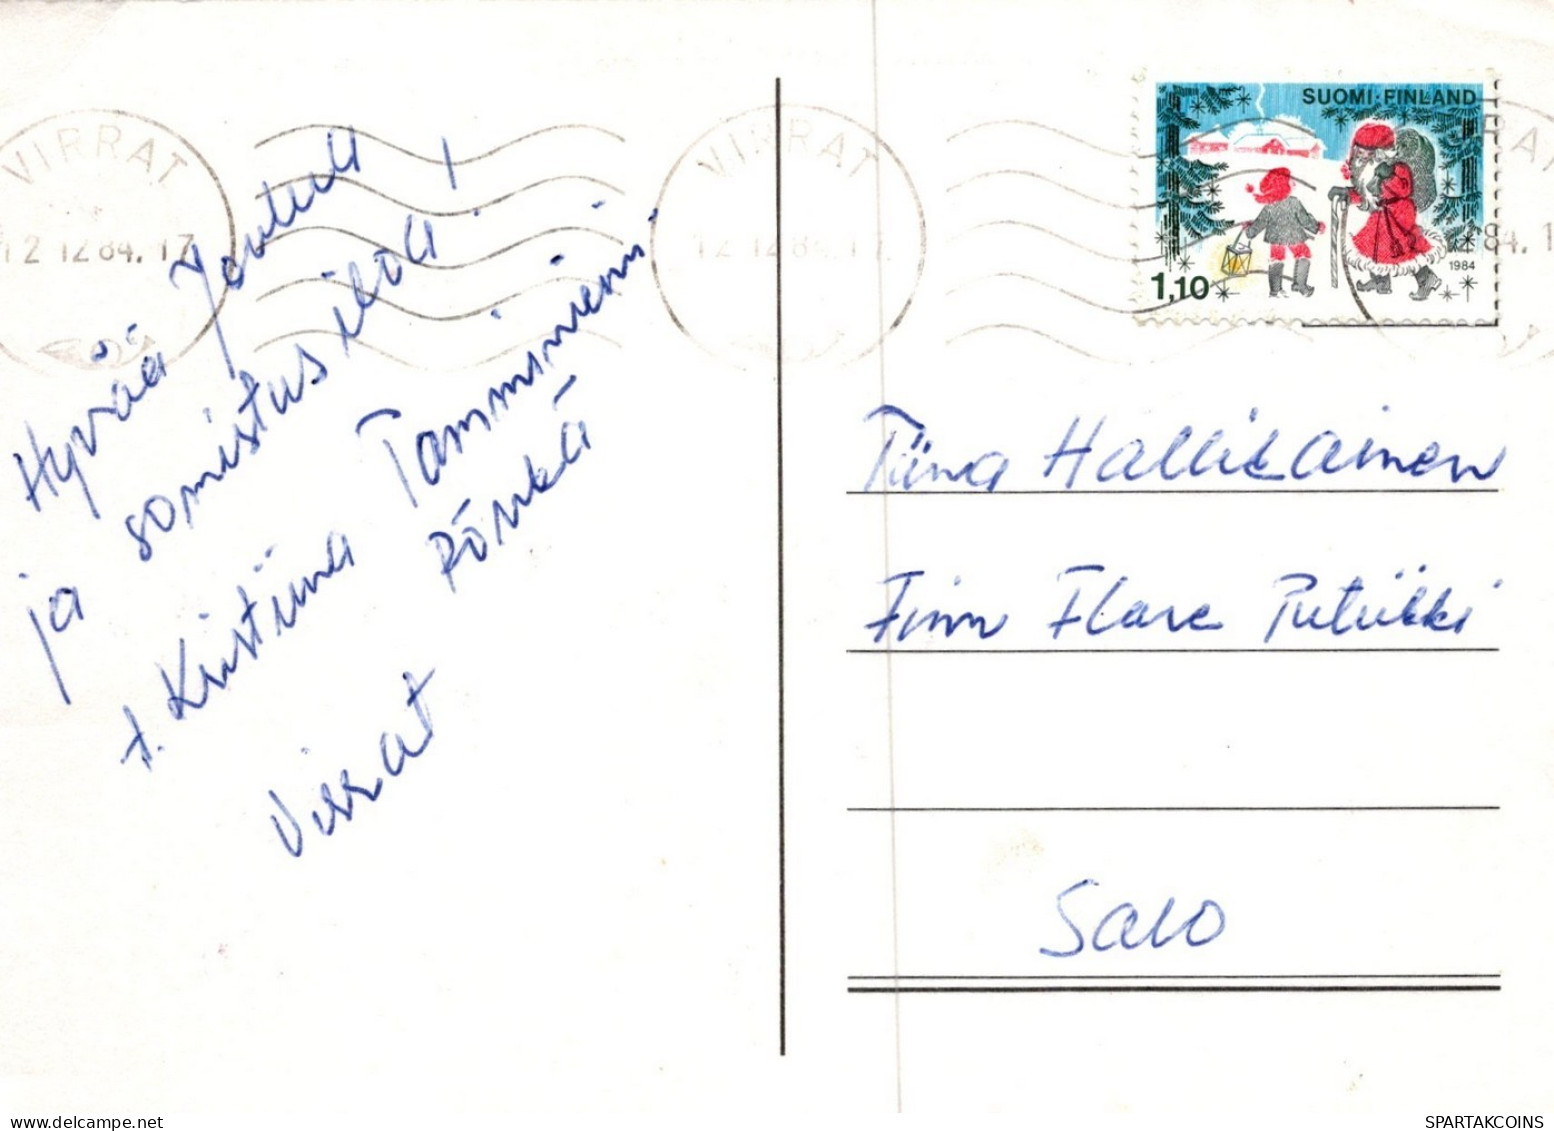 VIRRAT
12 12 84. 17
VIRRAT
12 12 84. 17
SUOMI·FINLAND
1984
1,10
Hyvää Joulua
ja somistusiloa!
t. Kristiina Tamminiemi
Rönkä
Virrat
Tiina Hallikainen
Finn Flare Putiikki
Salo
SPARTAKCOINS